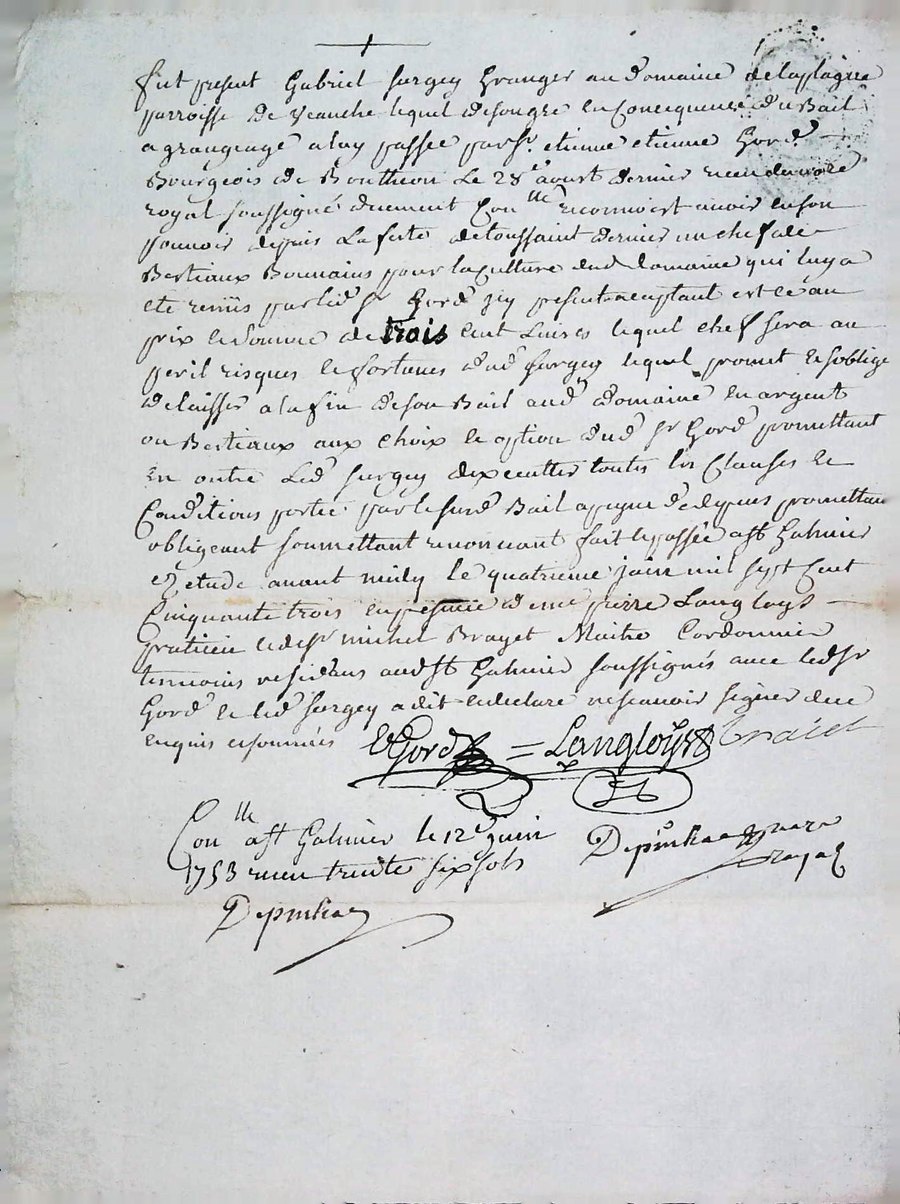 fut present Gabriel fargey Granger au domaine delaplagne
parroisse de Veauche lequel desongre en Consequence du Bail
a grangeage aluy passée par Sr. etienne etienne Gord
Bourgeois de Boutheon Le 28e aoust dernier receu du nore
royal soussigné duement Conllé reconnoist avoir en son
pouvoir depuis La feste de toussaint dernier un chef de
Bestiaux Bouvains pour la culture dud domaine qui luy a
eté remis par led Sr Gord icy present acceptant est ce au
prix et somme de trois cent Livres lequel chef sera au
peril risques et fortunes dud fargey lequel promet et soblige
delaisser a la fin de son Bail aud domaine en argent
ou Bestiaux aux choix et option dud Sr Gord promettant
en outre Led fargey dexecutter toutes les Clauses et
Conditions porté par le susd Bail a peyne d depens promettant
obligeant soumettant renoncant fait et passée a St Galmier
ez etude avant midy le quatrieme juin mil sept Cent
Cinquante trois en presence de me pierre Langloys
praticien et de Sr michel Brayet Maitre Cordonnier
temoins residans aud St Galmier soussignés avec led Sr
Gord et led fargey a dit et declaré ne scavoir signer de ce
enquis et sommés E Gord = Langloys
Conllé a St Galmier le 12e juin
1753 receu trente six sols